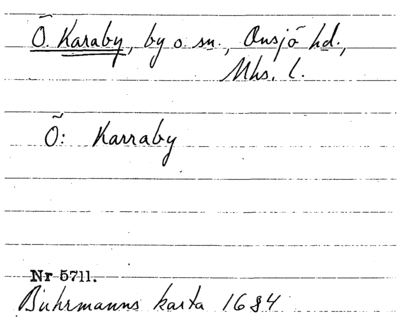 Ö. Karaby, by o. sn., Onsjö hd.,
Mhs. l.
Ö: Karraby
Nr 5711.
Buhrmanns karta 1684